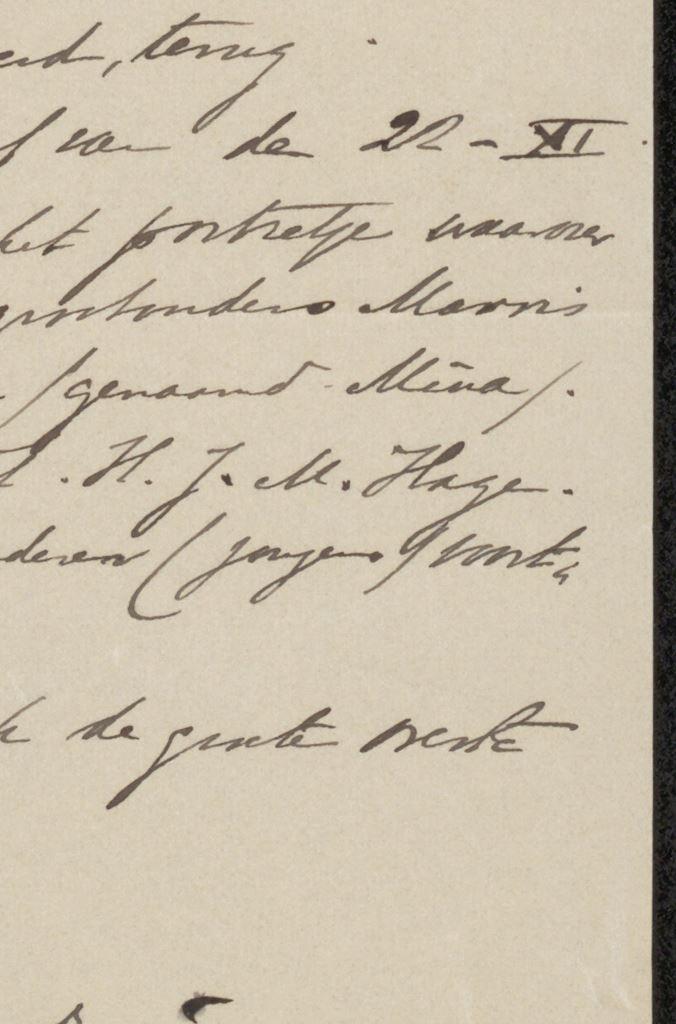 terug
van de 22 - XI
het portretje waarover
grootouders Marris
(genaamd Mina).
H. J. M. Hage.
deren (jongens) voort„
de groote